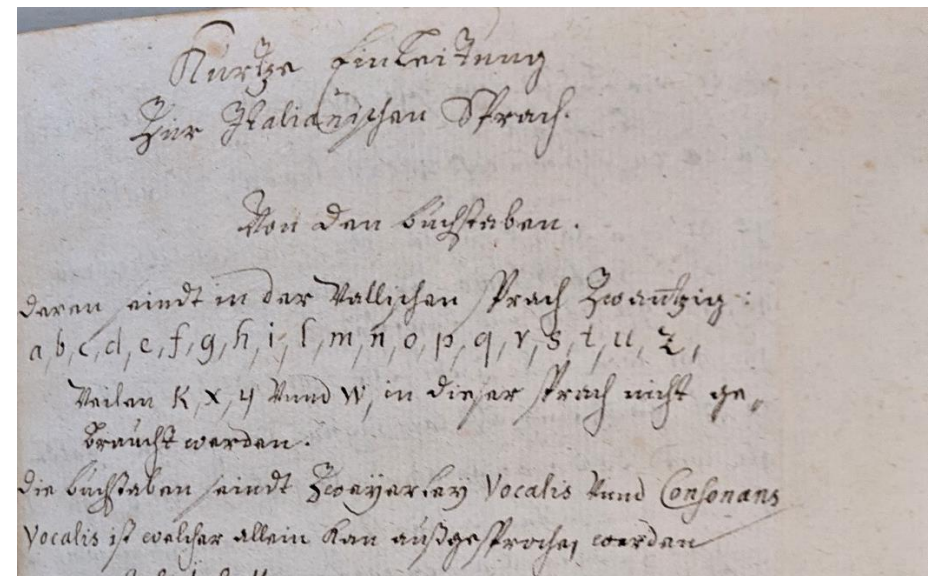 Kurtze Einleitung
Zur Italianischen Sprach.
Von den buchstaben.
deren seindt in der Wallischen sprach Zwantzig:
a, b, c, d, e, f, g, h, i, l, m, n, o, p, q, r, s, t, u, z,
Weilen K, x, y Vnnd W, in dieser sprach nicht ge,,
braucht werden.
die buchstaben seindt Zweyerley Vocalis Vnnd Consonans
Vocalis ist welcher allein Kan außgesprochen werden